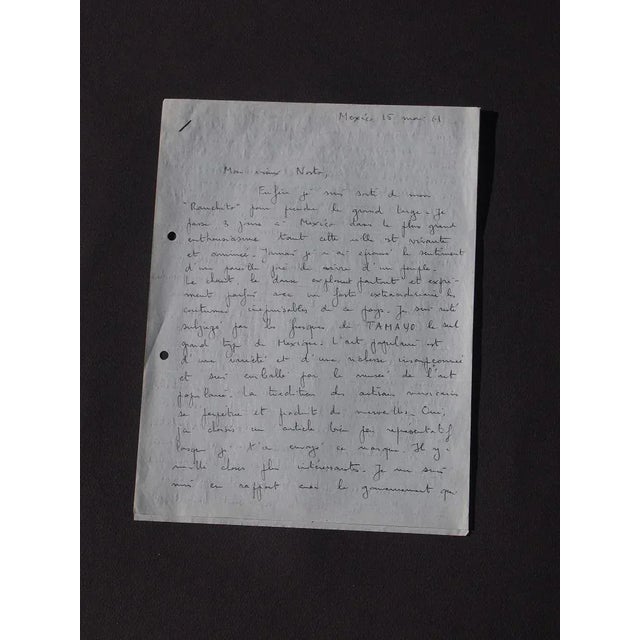 Mexico 15 mai 61
Mon vieux
Enfin je suis sorti de mon
"Ranchito" pour prendre le grand large. Je
passe 3 jours à Mexico dans le plus grand
enthousiasme tout cette ville est vivante
et animée. Jamais je n'ai éprouvé le sentiment
d'une pareille joie de vivre d'un peuple.
Le chant, la danse explosent partout et
parfois avec un faste extraordinaire les
costumes inépuisables de ce pays. Je suis resté
subjugué par les fresques de TAMAYO le seul
grand type de Mexique. L'art populaire est
d'une variété et d'une richesse insoupçonnée
et suis emballé par le musée de l'art
populaire. La tradition des artisans mexicains
se perpétue et produit des merveilles. Oui,
j'ai choisi un article bien peu représentatif
lorsque je t'ai envoyé ce masque. Il y a
mille choses plus intéressantes. Je me suis
mis en rapport avec le gouvernement que